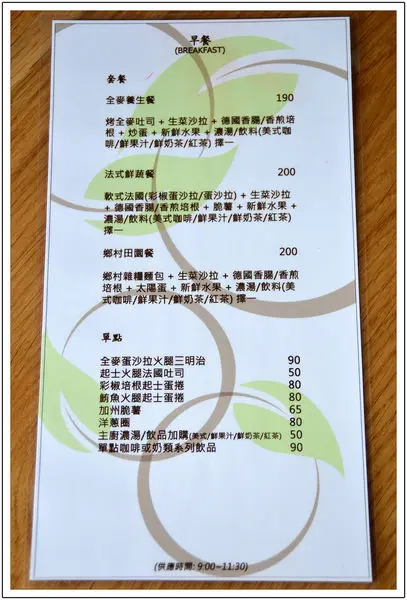 早餐
(BREAKFAST)
套餐
全麥養生餐 190
烤全麥吐司 + 生菜沙拉 + 德國香腸/香煎培
根 + 炒蛋 + 新鮮水果 + 濃湯/飲料(美式咖
啡/鮮果汁/鮮奶茶/紅茶) 擇一
法式鮮蔬餐 200
軟式法國(彩椒蛋沙拉/蛋沙拉) + 生菜沙拉
+ 德國香腸/香煎培根 + 脆薯 + 新鮮水果 +
濃湯/飲料(美式咖啡/鮮果汁/鮮奶茶/紅茶)
擇一
鄉村田園餐 200
鄉村雜糧麵包 + 生菜沙拉 + 德國香腸/香煎
培根 + 太陽蛋 + 新鮮水果 + 濃湯/飲料(美
式咖啡/鮮果汁/鮮奶茶/紅茶) 擇一
單點
全麥蛋沙拉火腿三明治 90
起士火腿法國吐司 50
彩椒培根起士蛋捲 80
鮪魚火腿起士蛋捲 80
加州脆薯 65
洋蔥圈 80
主廚濃湯/飲品加購(美式/鮮果汁/鮮奶茶/紅茶) 50
單點咖啡或奶類系列飲品 90
(供應時間: 9:00~11:30)